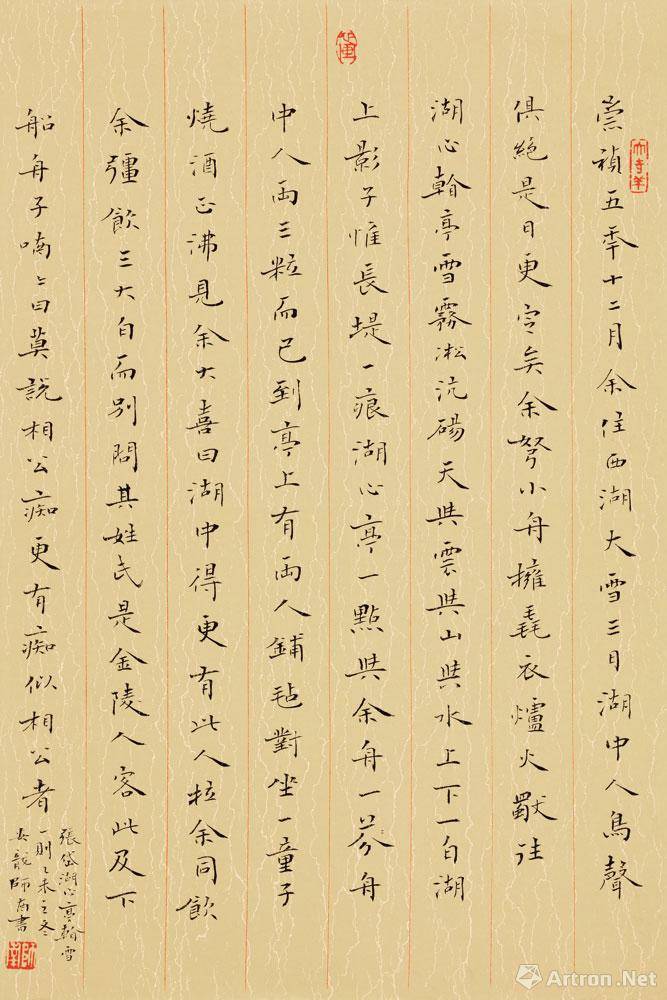 崇禎五年十二月余住西湖大雪三日湖中人鳥聲
俱絕是日更定矣余拏小舟擁毳衣爐火獨往
湖心看亭雪霧凇沆碭天與雲與山與水上下一白湖
上影子惟長堤一痕湖心亭一點與余舟一芥舟
中人兩三粒而已到亭上有兩人鋪毡對坐一童子
燒酒正沸見余大喜曰湖中得更有此人拉余同飲
余彊飲三大白而別問其姓氏是金陵人客此及下
船舟子喃〻曰莫說相公痴更有痴似相公者
張岱湖心亭看雪
一則乙未之冬
龍師書
Artron.Net